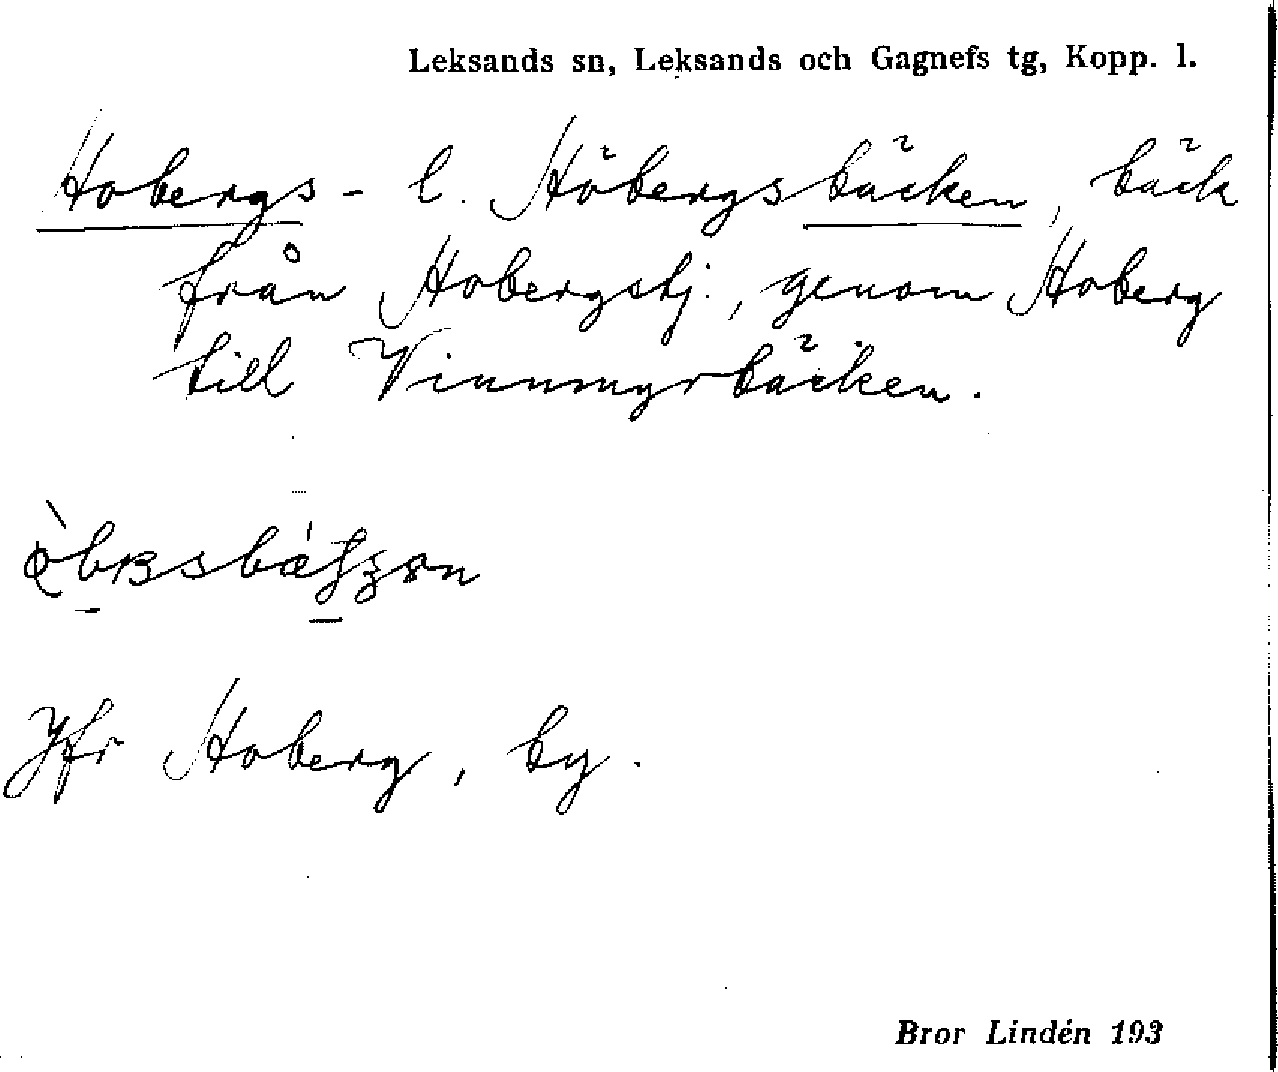 Leksands sn, Leksands och Gagnefs tg, Kopp. l.
Hobergs- l. Höbergsbäcken, bäck
från Hobergstj., genom Hoberg
till Vinnmyrbäcken.
Jfr Hoberg, by.
Bror Lindén 193